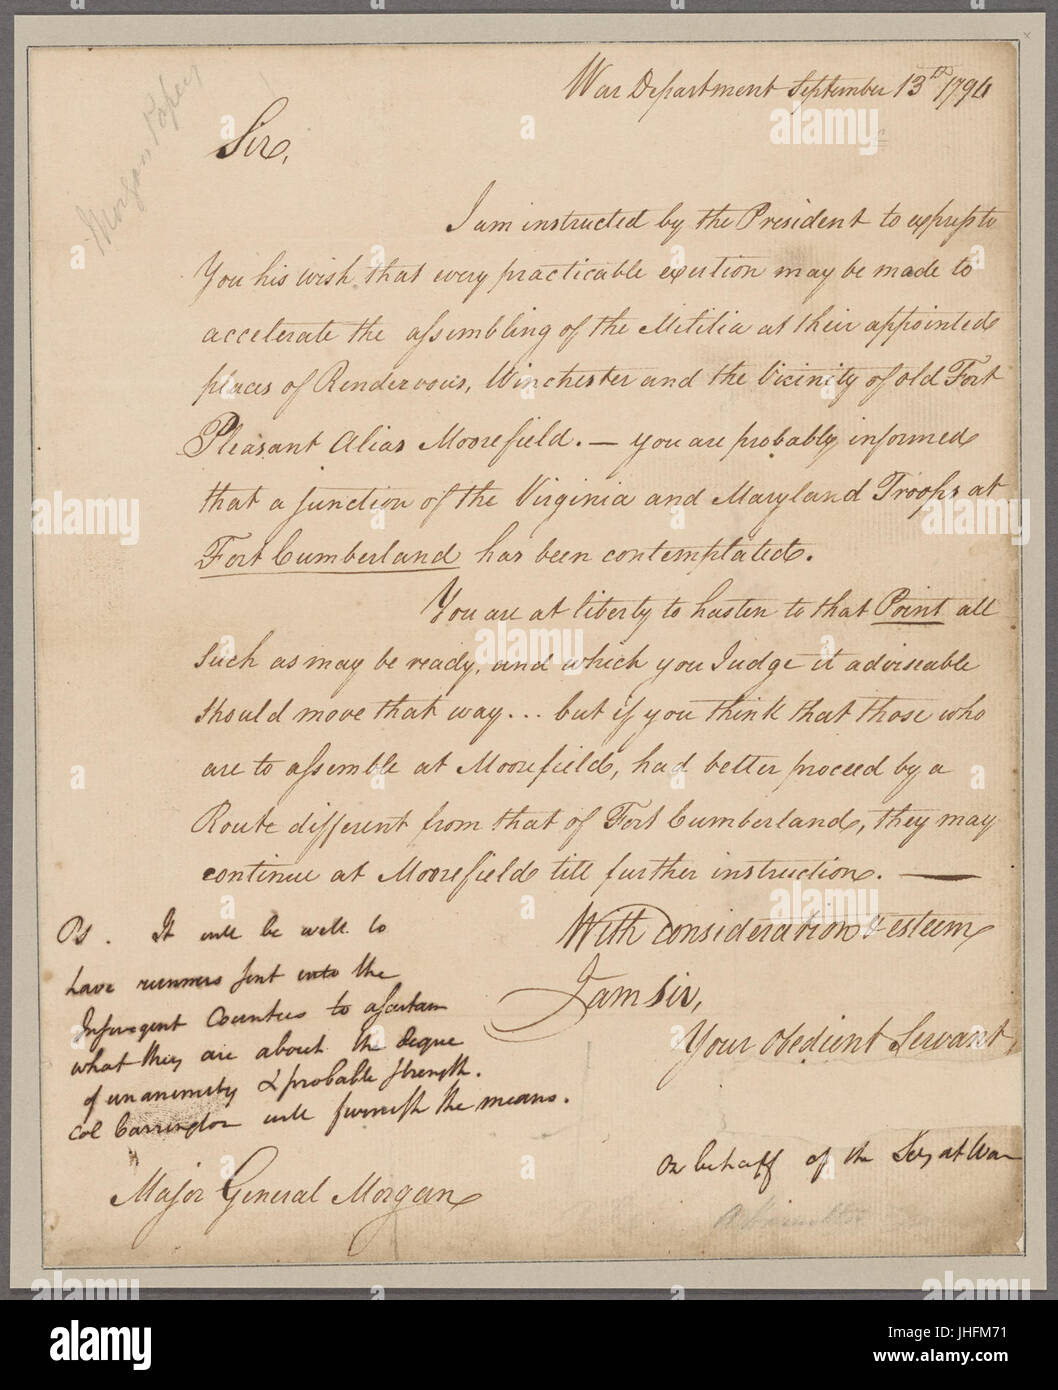 Morgan Papers
War Department September 13th 1794
Sir,
I am instructed by the President to express to
You his wish that every practicable exertion may be made to
accelerate the assembling of the Militia at their appointed
places of Rendezvous, Winchester and the Vicinity of old Fort
Pleasant Alias Moorefield. — you are probably informed
that a junction of the Virginia and Maryland Troops at
Fort Cumberland has been contemplated.
You are at liberty to hasten to that Point all
such as may be ready, and which you Judge it adviseable
should move that way... but if you think that those who
are to assemble at Moorefield, had better proceed by a
Route different from that of Fort Cumberland, they may
continue at Moorefield till further instruction. —
With consideration & esteem
I am Sir,
Your Obedient Servant,
Ps. It will be well to
have runners sent into the
Insurgent Counties to ascertain
what they are about the degree
of unanimity & probable strength.
Col Carrington will furnish the means.
on behalf of the Secy at War
A Hamilton
Major General Morgan
alamy
alamy
alamy
alamy
alamy
alamy
a alamy
Image ID: JHFM71
www.alamy.com